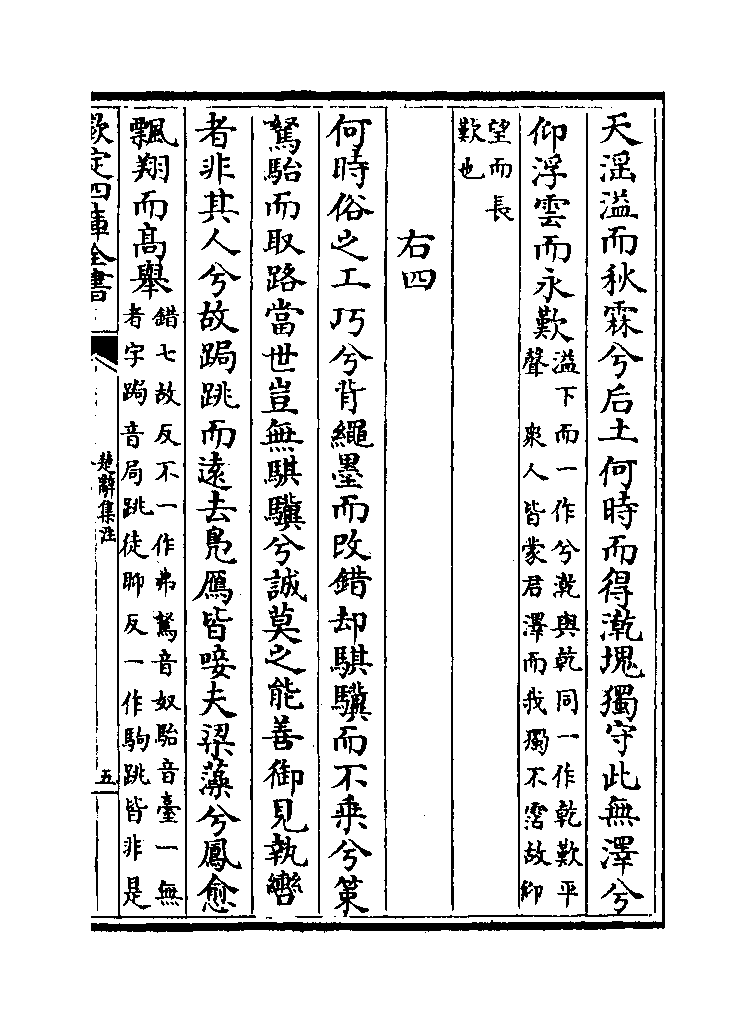 天滛溢而秋霖兮后土何時而得漧塊獨守此無澤兮
仰浮雲而永歎溢下而一作兮漧與乾同一作乾歎平
聲　衆人皆蒙君澤而我獨不霑故仰
望而長
歎也
右四
何時俗之工巧兮背繩墨而改錯却騏驥而不乗兮策
駑駘而取路當世豈無騏驥兮誠莫之能善御見執轡
者非其人兮故跼跳而逺去鳬鴈皆唼夫梁藻兮鳳愈
飄翔而髙舉錯七故反不一作弗駑音奴駘音臺一無
者字跼音局跳徒聊反一作駒跳皆非是
欽定四庫全書
楚辭集注
五